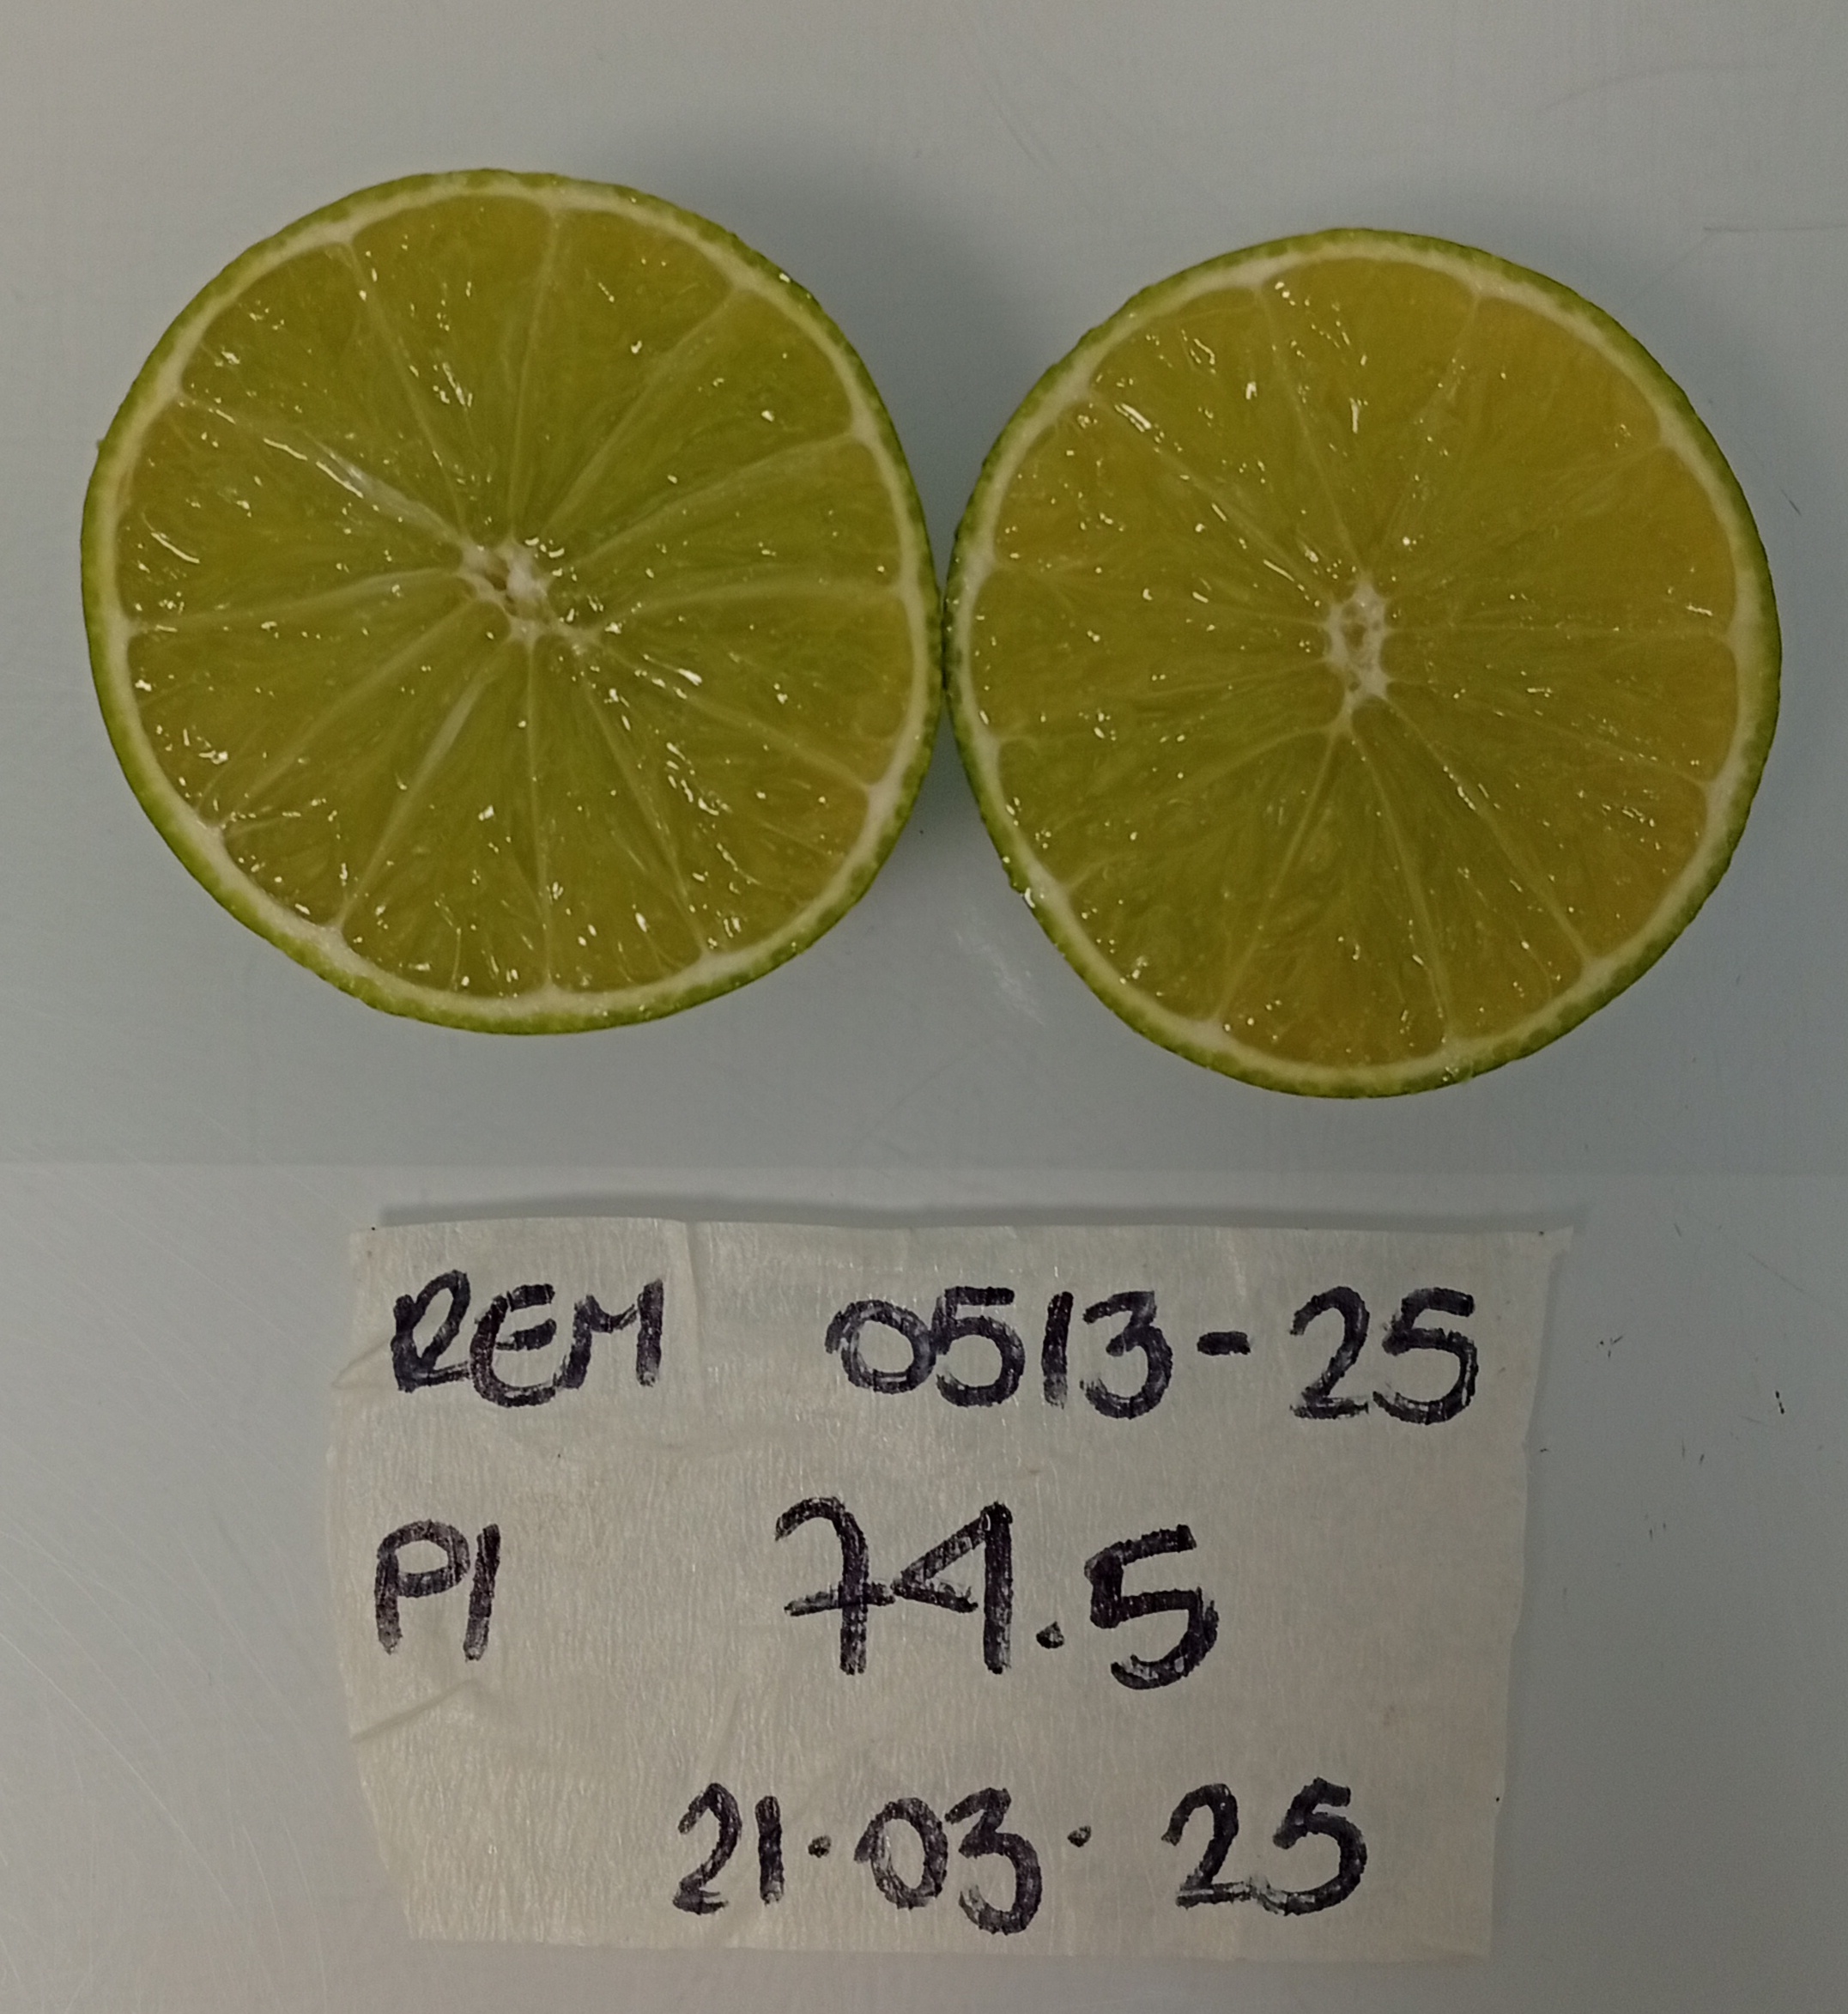 REM 0513-25
P1 74.5
21.03.25